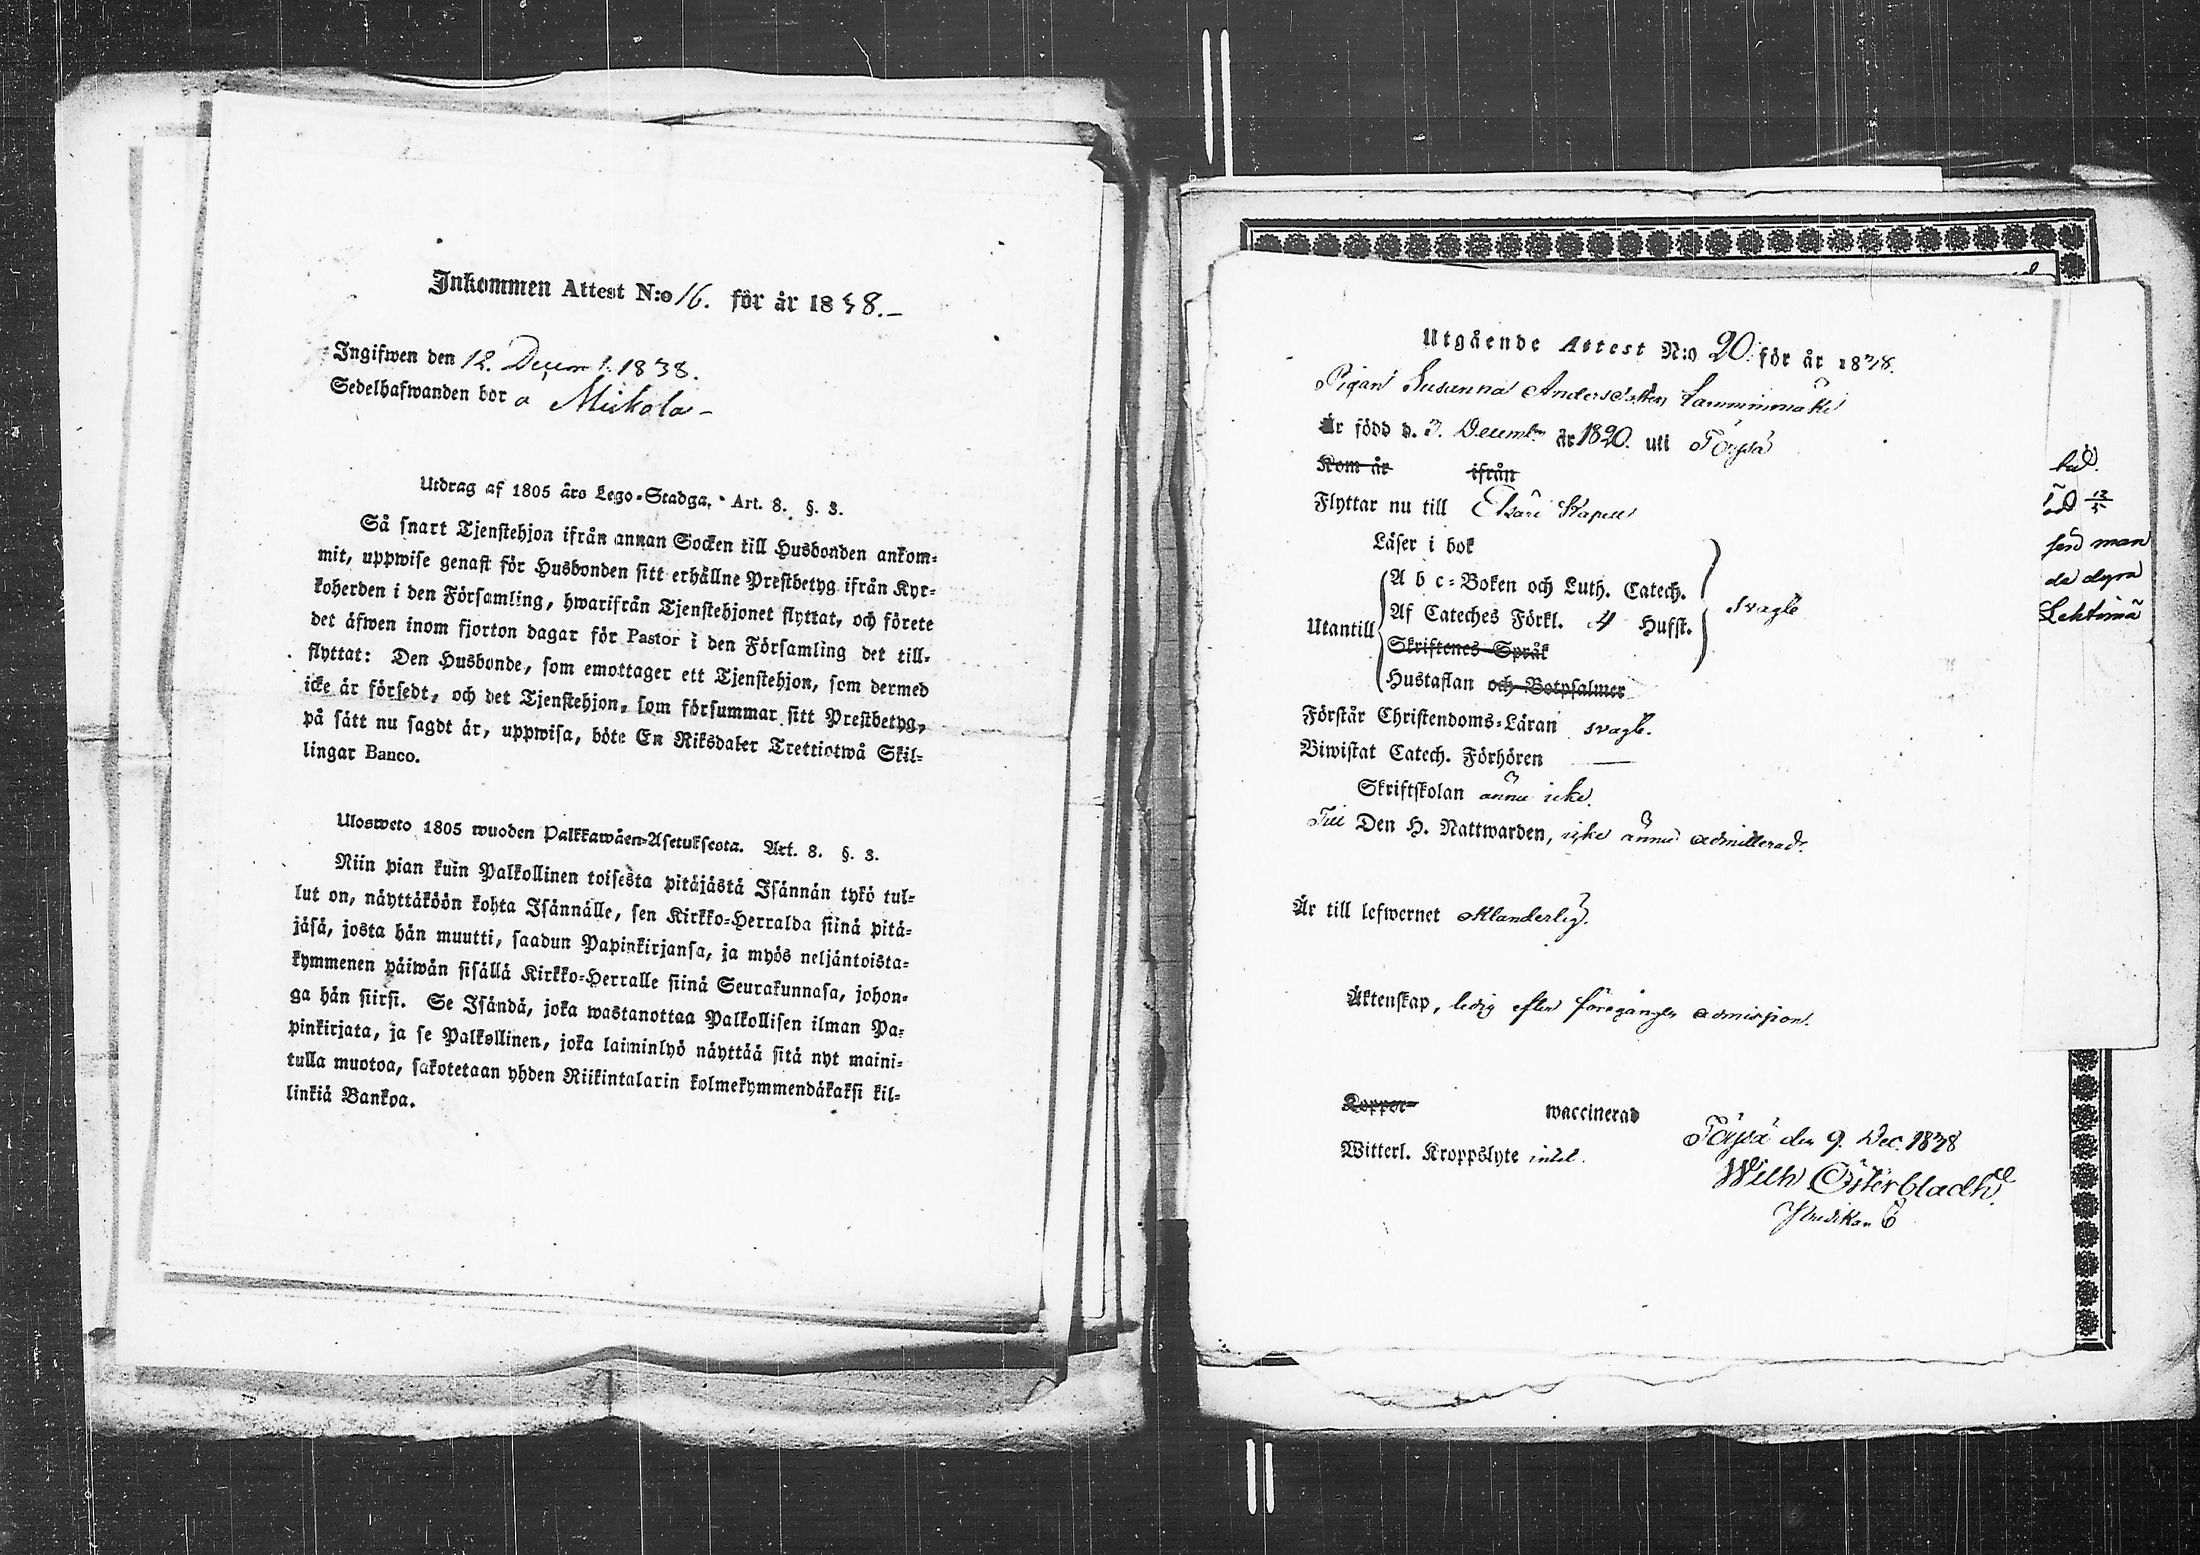 Inkommen Attest N:o 16. för år 1838.-
Ingifwen den 12. Decemb. 1838.
Sedelhafwanden bor å Mickola -
Utdrag af 1805 års Lego-Stadga. Art. 8. §. 3.
Så snart Tjenstehjon ifrån annan Socken till Husbonden ankom-
mit, uppwise genast för Husbonden sitt erhållne Prestbetyg ifrån Kyr-
koherden i den Församling, hwarifrån Tjenstehjonet flyttat, och förete
det äfwen inom fjorton dagar för Pastor i den Församling det till-
flyttat: Den Husbonde, som emottager ett Tjenstehjon, som dermed
icke är försedt, och det Tjenstehjon, som försummar sitt Prestbetyg,
på sätt nu sagdt är, uppwisa, böte En Riksdaler Trettiotwå Skil-
lingar Banco.
Ulosweto 1805 wuoden Palkkawäen-Asetuksesta. Art. 8. §. 3.
Niin pian kuin Palkollinen toisesta pitäjästä Isännän tykö tul-
lut on, näyttäköön kohta Isännälle, sen Kirkko-Herralda siinä pitä-
jäsä, josta hän muutti, saadun Papinkirjansa, ja myös neljäntoista-
kymmenen päiwän sisällä Kirkko-Herralle siinä Seurakunnasa, johon-
ga hän siirsi. Se Isändä, joka wastanottaa Palkollisen ilman Pa-
pinkirjata, ja se Palkollinen, joka laiminlyö näyttää sitä nyt maini-
tulla muotoa, sakotetaan yhden Riikintalarin kolmekymmendäkaksi kil-
linkiä Bankoa.
Utgående Attest N:o 20. för år 1838.
Pigan Susanna Andersdotter Lamminmäki
Är född d. 3. Decemb. år 1820. uti Töysä
Kom år ifrån
Flyttar nu till Etsäri Kapell
Läser i bok
A b c-Boken och Luth. Catech.
Utantill Af Cateches Förkl. 4 Hufst. svagt
Skriftenes Språk
Hustaflan och Botpsalmer
Förstår Christendoms-Läran svagt.
Biwistat Catech. Förhören —
Skriftskolan ännu icke.
Till Den H. Nattwarden, icke ännu admitterad.
Är till lefwernet oklanderlig.
Äktenskap, ledig efter föregången admission.
Koppor- waccinerad
Witterl. Kroppslyte intet.
Töysä den 9. Dec. 1838
Wilh Österbladh
Predikan